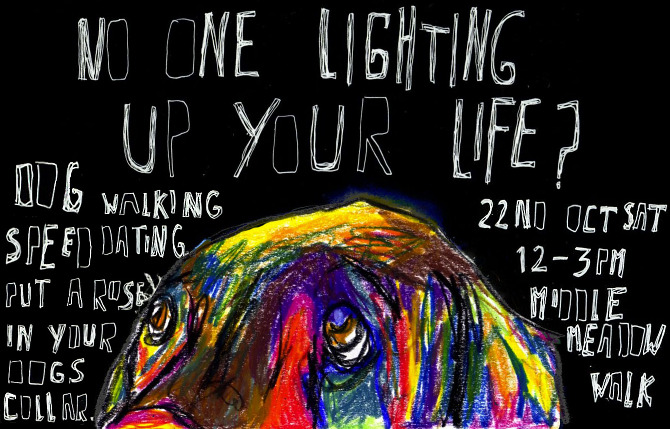 NO ONE LIGHTING
UP YOUR LIFE?
DOG WALKING
SPEED DATING
PUT A ROSE
IN YOUR
DOGS
COLLAR.
22ND OCT SAT
12-3PM
MIDDLE
MEADOW
WALK